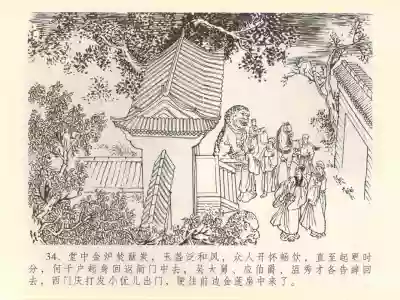 34、堂中金炉焚兽炭，玉盏泛和风，众人开怀畅饮，直至起更时
分，何千户起身回返衙门中去，吴大舅、应伯爵、温秀才各告辞回
去，西门庆打发小优儿出门，便往前边金莲房中来了。